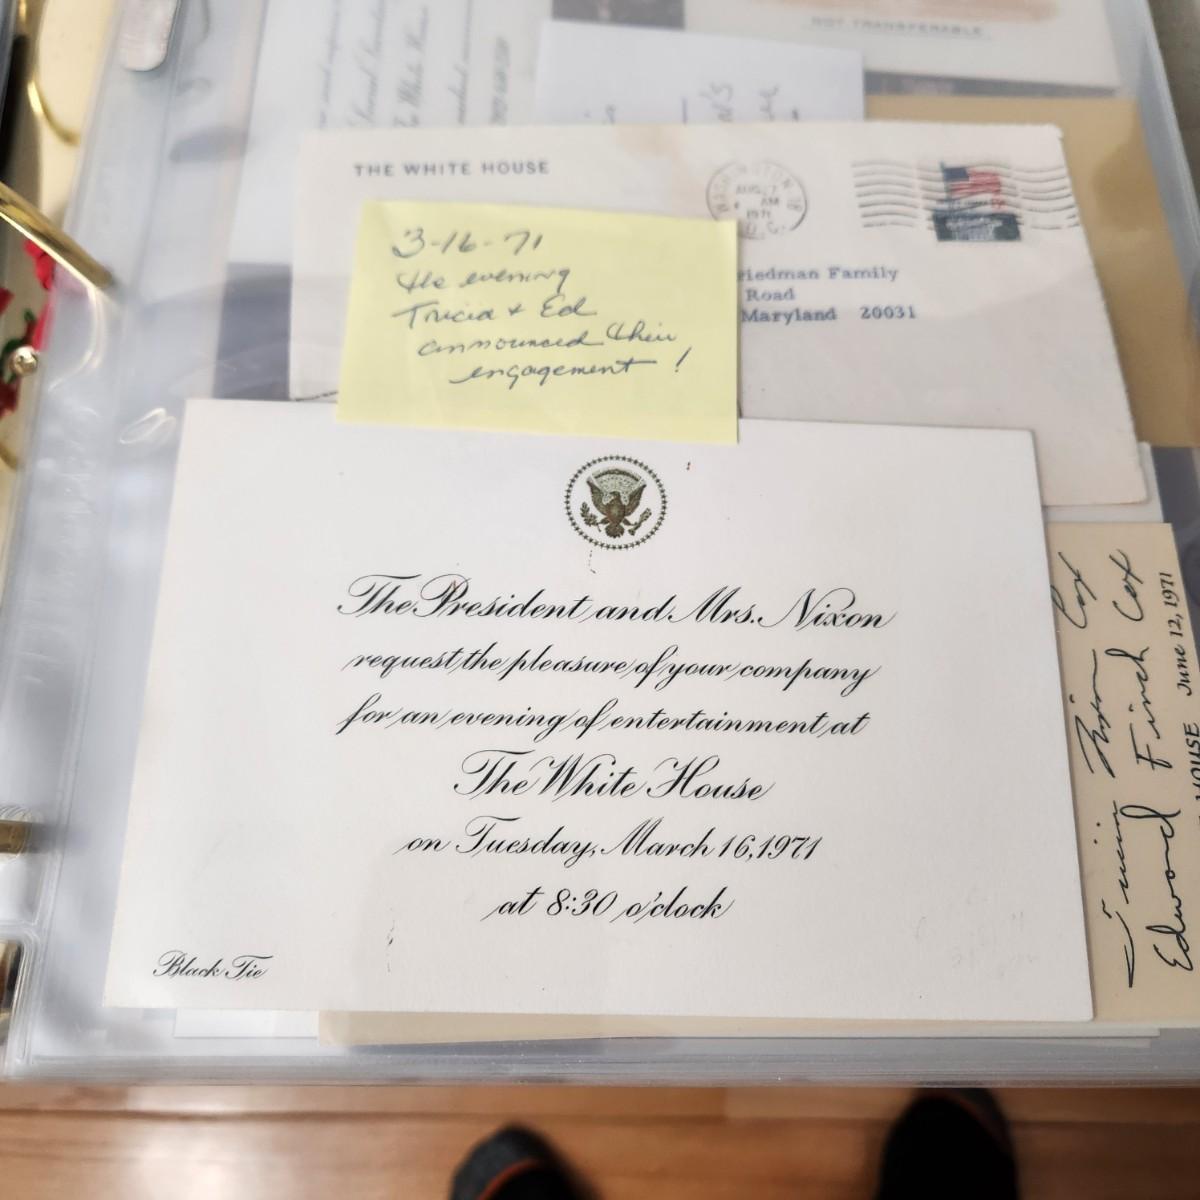 NOT TRANSFERABLE
THE WHITE HOUSE
WASHINGTON
AUG 17
AM
1971
D.C.
3-16-71
the evening
Tricia & Ed
announced their
engagement!
riedman Family
Road
Maryland 20031
The President and Mrs. Nixon
request the pleasure of your company
for an evening of entertainment at
The White House
on Tuesday, March 16, 1971
at 8:30 o'clock
Black Tie
Tricia Nixon Cox
Edward Finch Cox
HOUSE June 12, 1971